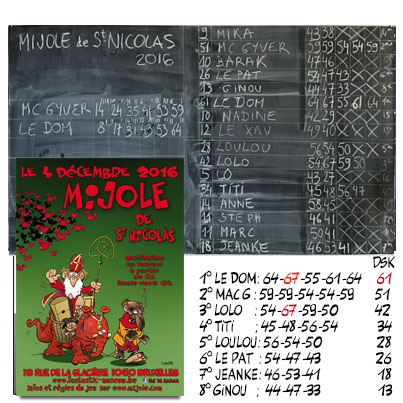 MIJOLE de St NICOLAS
2016
MC GYVER 14 24 35 41 53 59
LE DOM 8 17 31 43 53 64
9 MIKA 43 38
51 MC GYVER 59 59 54 54 59
10 BARAK 47
26 LE PAT 54 47 43
13 GINOU 44 47 33
61 LE DOM 64 67 55 61 64
10 NADINE 42 29
12 LE XAV 49 40
28 LOULOU 56 54 50
42 LOLO 54 67 59 50
5 LÔ
34 TITI 45 48 56 47
14 ANNE 58 45
11 STEPH
11 MARC
18 JEANKE 46 53 41
LE 4 DÉCEMBRE 2016
MIJOLE
DE
St NICOLAS
18 RUE DE LA GLACIÈRE 1060 BRUXELLES
Infos et règles du jeu sur www.mijole.com
DSK
1° LE DOM: 64-67-55-61-64 61
2° MAC G: 59-59-54-54-59 51
3° LOLO : 54-67-59-50 42
4° TITI : 45-48-56-54 34
5° LOULOU: 56-54-50 28
6° LE PAT : 54-47-43 26
7° JEANKE: 46-53-41 18
8° GINOU : 44-47-33 13